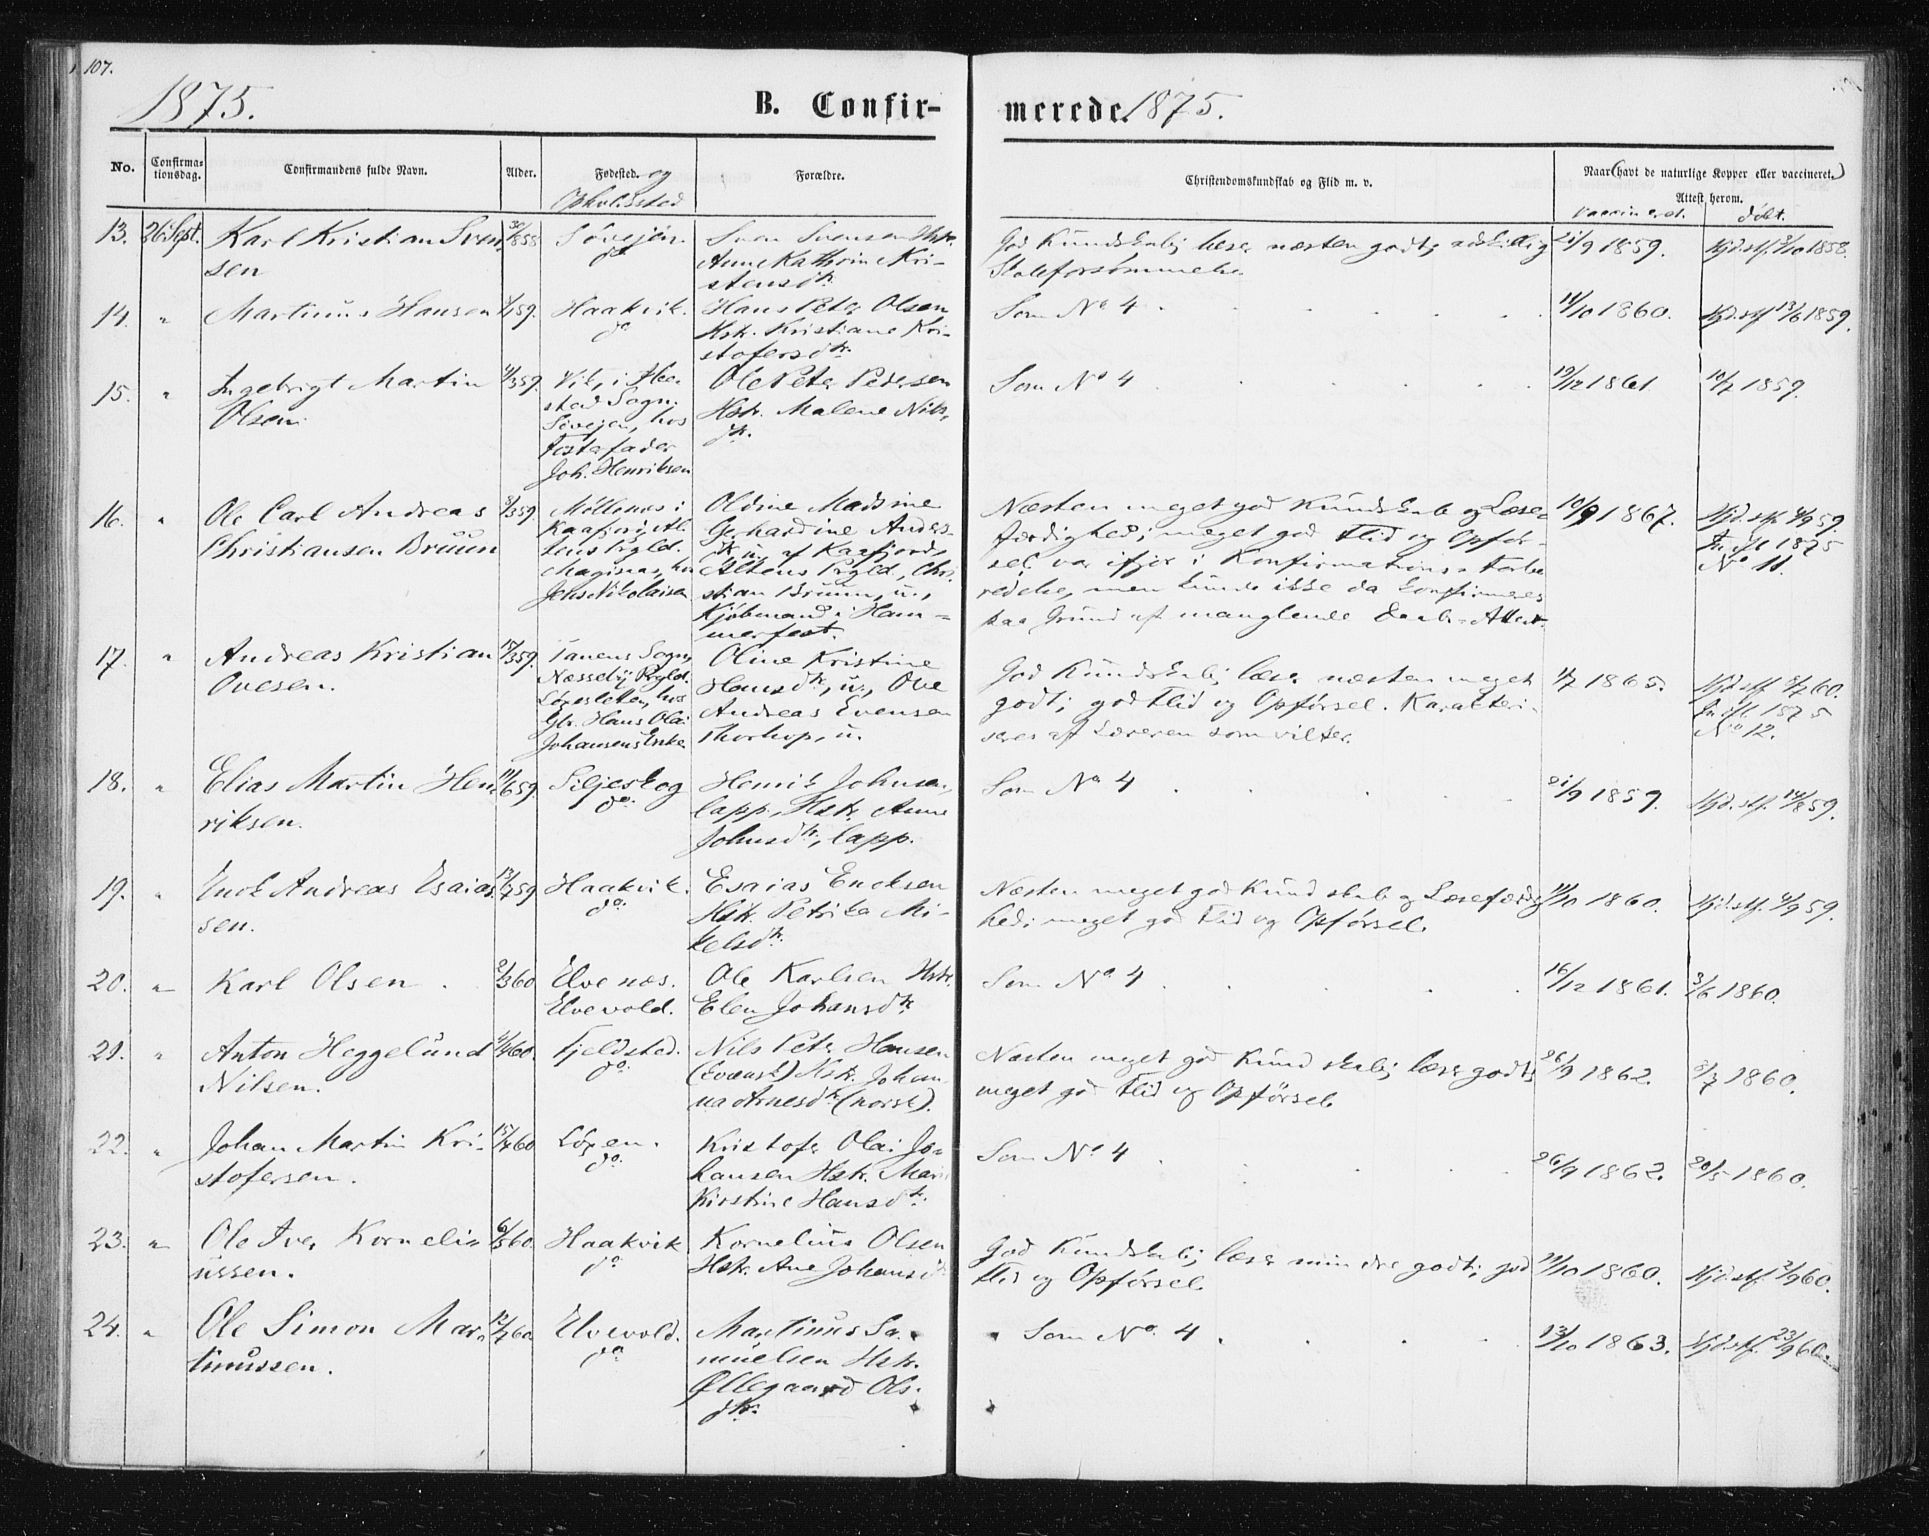 107.
1875.
B. Confir-
merede 1875.
No.
Confirma-
tionsdag.
Confirmandens fulde Navn.
Alder.
Fødested. og
Opholdssted
Forældre.
Christendomskundskab og Flid m. v.
Naar (havt de naturlige Kopper eller vaccineret.)
Attest herom.
Vaccineret.
døbt.
13. 26 Sept. Karl Kristian Sven-
sen
30/8 58
Søvejen.
do
Sven Svensen Hstr.
Anne Kathrin Kri-
stensdtr.
God Kundskab; læser næsten godt; adskillig
Skoleforsømmelse.
21/9 1859.
Hjd. stf. 3/10 1858.
14. " Martinus Hansen
59.
Haakvik.
do
Hans Peter Olsen
Hstr. Kristiane Kri-
stofersdtr.
Som No 4
14/10 1860.
Hjd. stf. 13/6 1859.
15. " Ingebrigt Martin
Olsen.
4/3 59.
Vik, i Ibe-
stad Sogn.
Søvejen, hos
Fosterfader
Joh. Henriksen
Ole Peter Pedersen
Hstr. Malene Nils-
dtr.
Som No 4
19/12 1861.
10/7 1859.
16. " Ole Carl Andreas
Christiansen Bruun
8/3 59.
Møllenes i
Kaafjord, Al-
tens Prgld.
hos
Jens Nikolaisen
Oldine Madsine
Gerhardine Anders-
dtr. u. af Kaafjord,
Altens Prgld., Chri-
stian Bruun, u.,
Kjøbmand i Ham-
merfest.
Næsten meget god Kundskab og Læse-
færdighed; meget god Flid og Opfør-
sel, var ifjor i Konfirmations-Forbe-
redelse, men kunde ikke da konfirmeres
paa Grund af manglende Daabs-Attest.
10/9 1867.
Hjd. stf. 4/9 59.
1875
No 11.
17. " Andreas Kristian
Ovesen.
17/3 59.
Tanens Sogn,
Næsseby Prgld.
hos
Gbr. Hans Olai
Johansens Enke
Oline Kristine
Hansdtr., u., Ove
Andreas Evensen
Thorhop, u.
God Kundskab; læser næsten meget
godt; god Flid og Opførsel. Karakteri-
seres af Læreren som vilter.
1/7 1865.
Hjd. stf. 60.
1875
No 12.
18. " Elias Martin Hen-
riksen.
11/6 59.
Siljeskog
do.
Henrik Johnsen,
lapp, Hstr. Anne
Johnsdtr., lapp.
Som No 4
21/9 1859.
Hjd. stf. 14/8 59.
19. " Enok Andreas Esaias-
sen.
13/7 59
Haakvik.
do.
Esaias Enoksen
Hstr. Petrike Mi-
kelsdtr.
Næsten meget god Kundskab og Læsefærdig-
hed; meget god Flid og Opførsel.
14/10 1860.
Hjd. stf. 4/9 59.
20. " Karl Olsen
2/3 60
Elvenæs.
Elvevold.
Ole Karlsen Hstr.
Elen Johansdtr.
Som No 4
16/12 1861.
3/6 1860.
21. " Anton Heggelund
Nilsen.
60.
Fjeldstad.
do.
Nils Peter Hansen
(kvænsk) Hstr. Johan-
na Arnesdtr. (norsk).
Næsten meget god Kundskab; læser godt;
meget god Flid og Opførsel.
26/9 1862.
8/7 1860.
22. " Johan Martin Kri-
stofersen.
15/4 60
do.
Kristofer Olai Jo-
hansen Hstr. Mari
Kirstine Hansdtr.
Som No 4
26/9 1862.
20/5 1860.
23. " Ole Iver Korneli-
ussen.
6/5 60.
Haakvik
do
Kornelius Olsen
Hstr. Ane Johansdtr.
God Kundskab; læser mindre godt; god
Flid og Opførsel.
14/10 1860.
Hjd. stf. 2/9 60.
24. " Ole Simon Mar-
tinussen.
12/7 60
Elvevold.
do
Martinus Sa-
muelsen Hstr.
Øllegaard Ols-
dtr.
Som No. 4
13/10 1863.
Hjd. stf. 23/9 60.